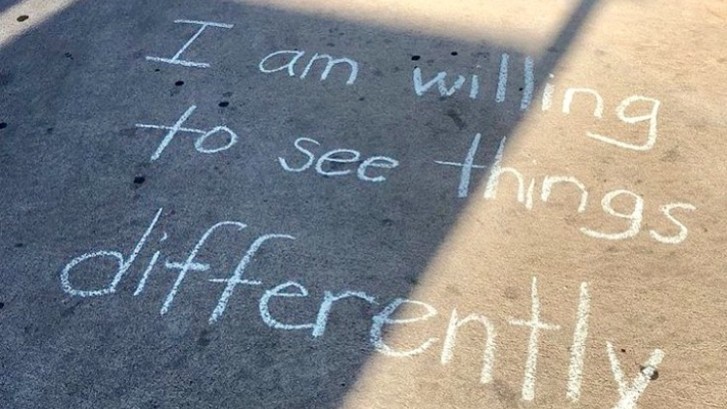 I am willing
to see things
differently